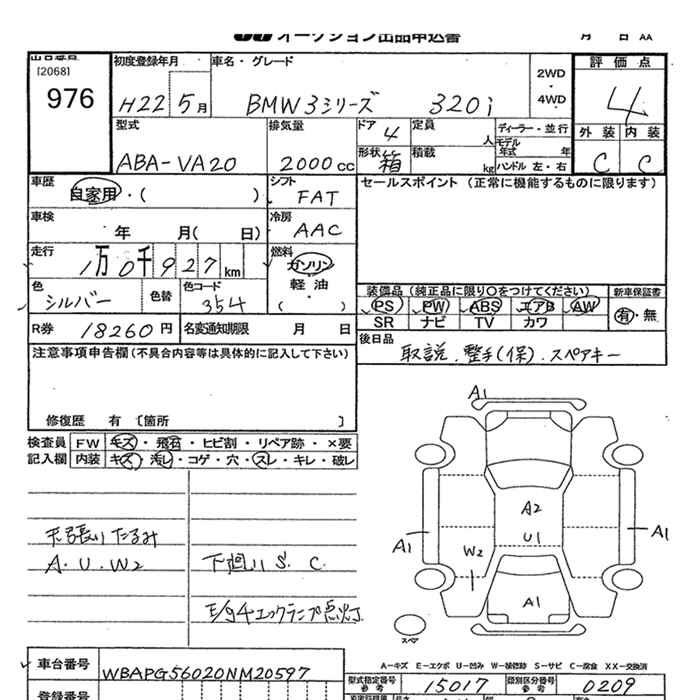 オークション出品申込書 月 日 AA
出品番号 初度登録年月 車名・グレード 評価点
[2068]
976 H22 5月 BMW3シリーズ 320i 2WD・4WD 4
型式 排気量 ドア 4 定員 人 ディーラー・並行 外装 内装
モデル年式 年
ABA-VA20 2000cc 形状 箱 積載 kg ハンドル 左・右 C C
車歴 シフト セールスポイント(正常に機能するものに限ります)
自家用・( ) FAT
車検 冷房
年 月( 日) AAC
走行 燃料
1万0千927km ガソリン
軽油
色 色替 色コード ( ) 装備品(純正品に限り〇をつけてください) 新車保証書
シルバー 354 PS PW ABS エアB AW 有・無
SR ナビ TV カワ
R券 18260円 名変通知期限 月 日 後日品
取説.整手(保).スペアキー
注意事項申告欄(不具合内容等は具体的に記入して下さい)
修復歴 有 〔箇所 〕
検査員 FW キズ・飛石・ヒビ割・リペア跡・×要
記入欄 内装 キズ・汚レ・コゲ・穴・スレ・キレ・破レ
天張りたるみ
A.U.W2 下廻り S.C.
E/gチェックランプ点灯
A1
A2
U1
A1 W2 A1
A1
スペア
A-キズ E-エクボ U-凹み W-補修跡 S-サビ C-腐食 XX-交換済
車台番号 WBAPG56020NM20597
型式指定番号 参考 15017 類別区分番号 参考 0209
登録番号